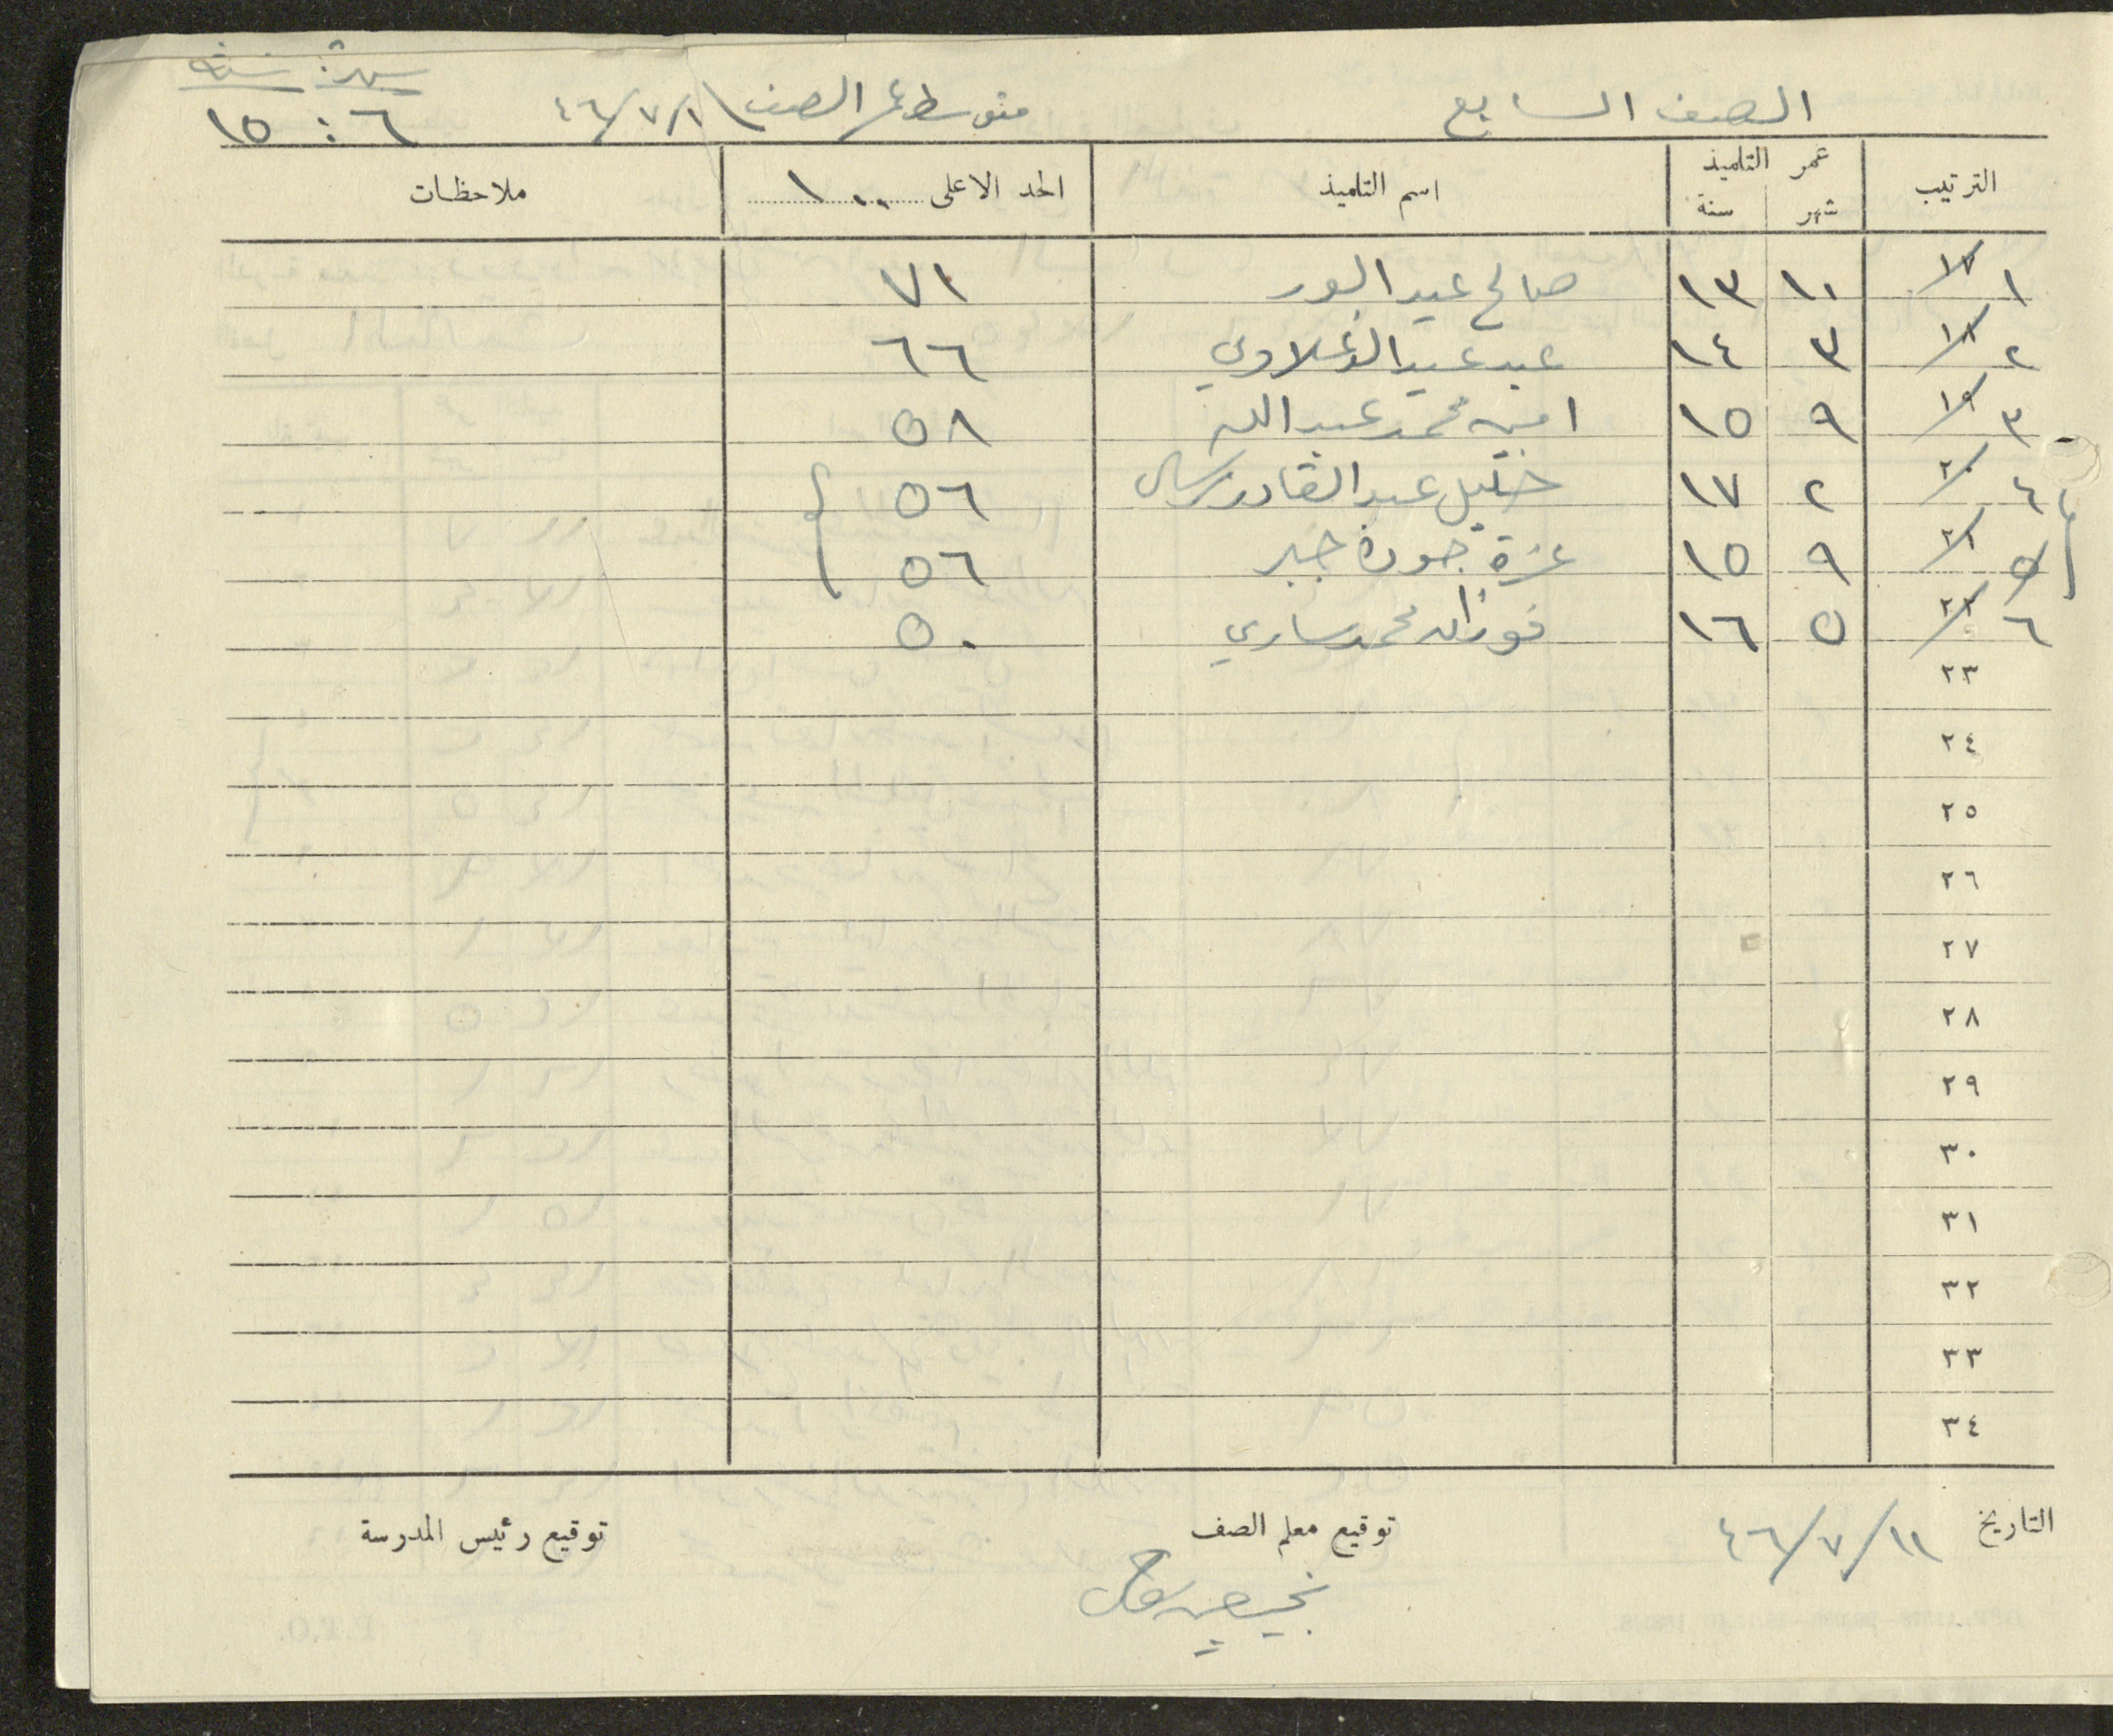 الصف السابع متوسط عمر الصف ١/٧/٤٦ شهر سنة
٦ : ١٥
الترتيب عمر التلميذ اسم التلميذ الحد الاعلى ١٠٠ ملاحظات
شهر سنة
١ ١٧ ١٠ ١٣ صالح عيد البور ٧١
٢ ١٨ ٣ ١٤ عبد عيد الزغلاوي ٦٦
٣ ١٩ ٩ ١٥ امين محمد عبد الله ٥٨
٤ ٢٠ ٢ ١٧ خليل عبد القادر ٥٦
٥ ٢١ ٩ ١٥ عزة جودة جبر ٥٦
٦ ٢٢ ٥ ١٦ فوزان محمد ساري ٥٠
٢٣
٢٤
٢٥
٢٦
٢٧
٢٨
٢٩
٣٠
٣١
٣٢
٣٣
٣٤
التاريخ ١١/٧/٤٦ توقيع معلم الصف توقيع رئيس المدرسة